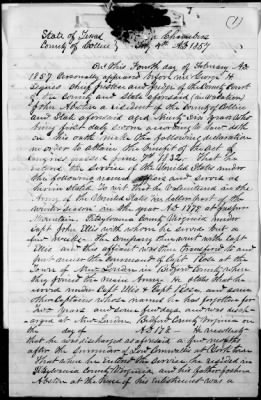 (1)
State of Texas } In Chambers
County of Collin } Feby 4th AD 1857
On this Fourth day of February AD
1857 Personally appeared before me George H
Pegues Chief Justice and Judge of the County Court
of the County and State aforesaid (in vacation)
John Abston a resident of the County of Collin
and State aforesaid aged Ninety Six years who
being first duly sworn according to law doth
on his oath make the following declaration
in order to obtain the benefit of the act of
Congress passed June 7th 1832. That he
entered the service of the United States under
the following named officers and served as
herein stated. To wit that he volunteered in the
Army of the United States in latter part of the
winter season in the year AD 1778 at
Mountain, Pittsylvania County Virginia under
Capt John Ellis with whom he served but a
few months. The company then went with Capt
Ellis and his officers was then transferred to and
put under the command of Capt Rose at the
Town of New London in Bedford County where
they joined the main army. He states that he
served under Capt Ellis & Capt Rose and some
other Captains whose names he has forgotten for
two years and some few days, and was disch-
arged at New London, Bedford County Virginia on
the day of AD 178 He recollects
that he was discharged as aforesaid a few months
after the surrender of Lord Cornwallis at York town
That when he entered the service he resided in
Pittsylvania County Virginia, and his father Joshua
Abston at the time of his enlistment was a